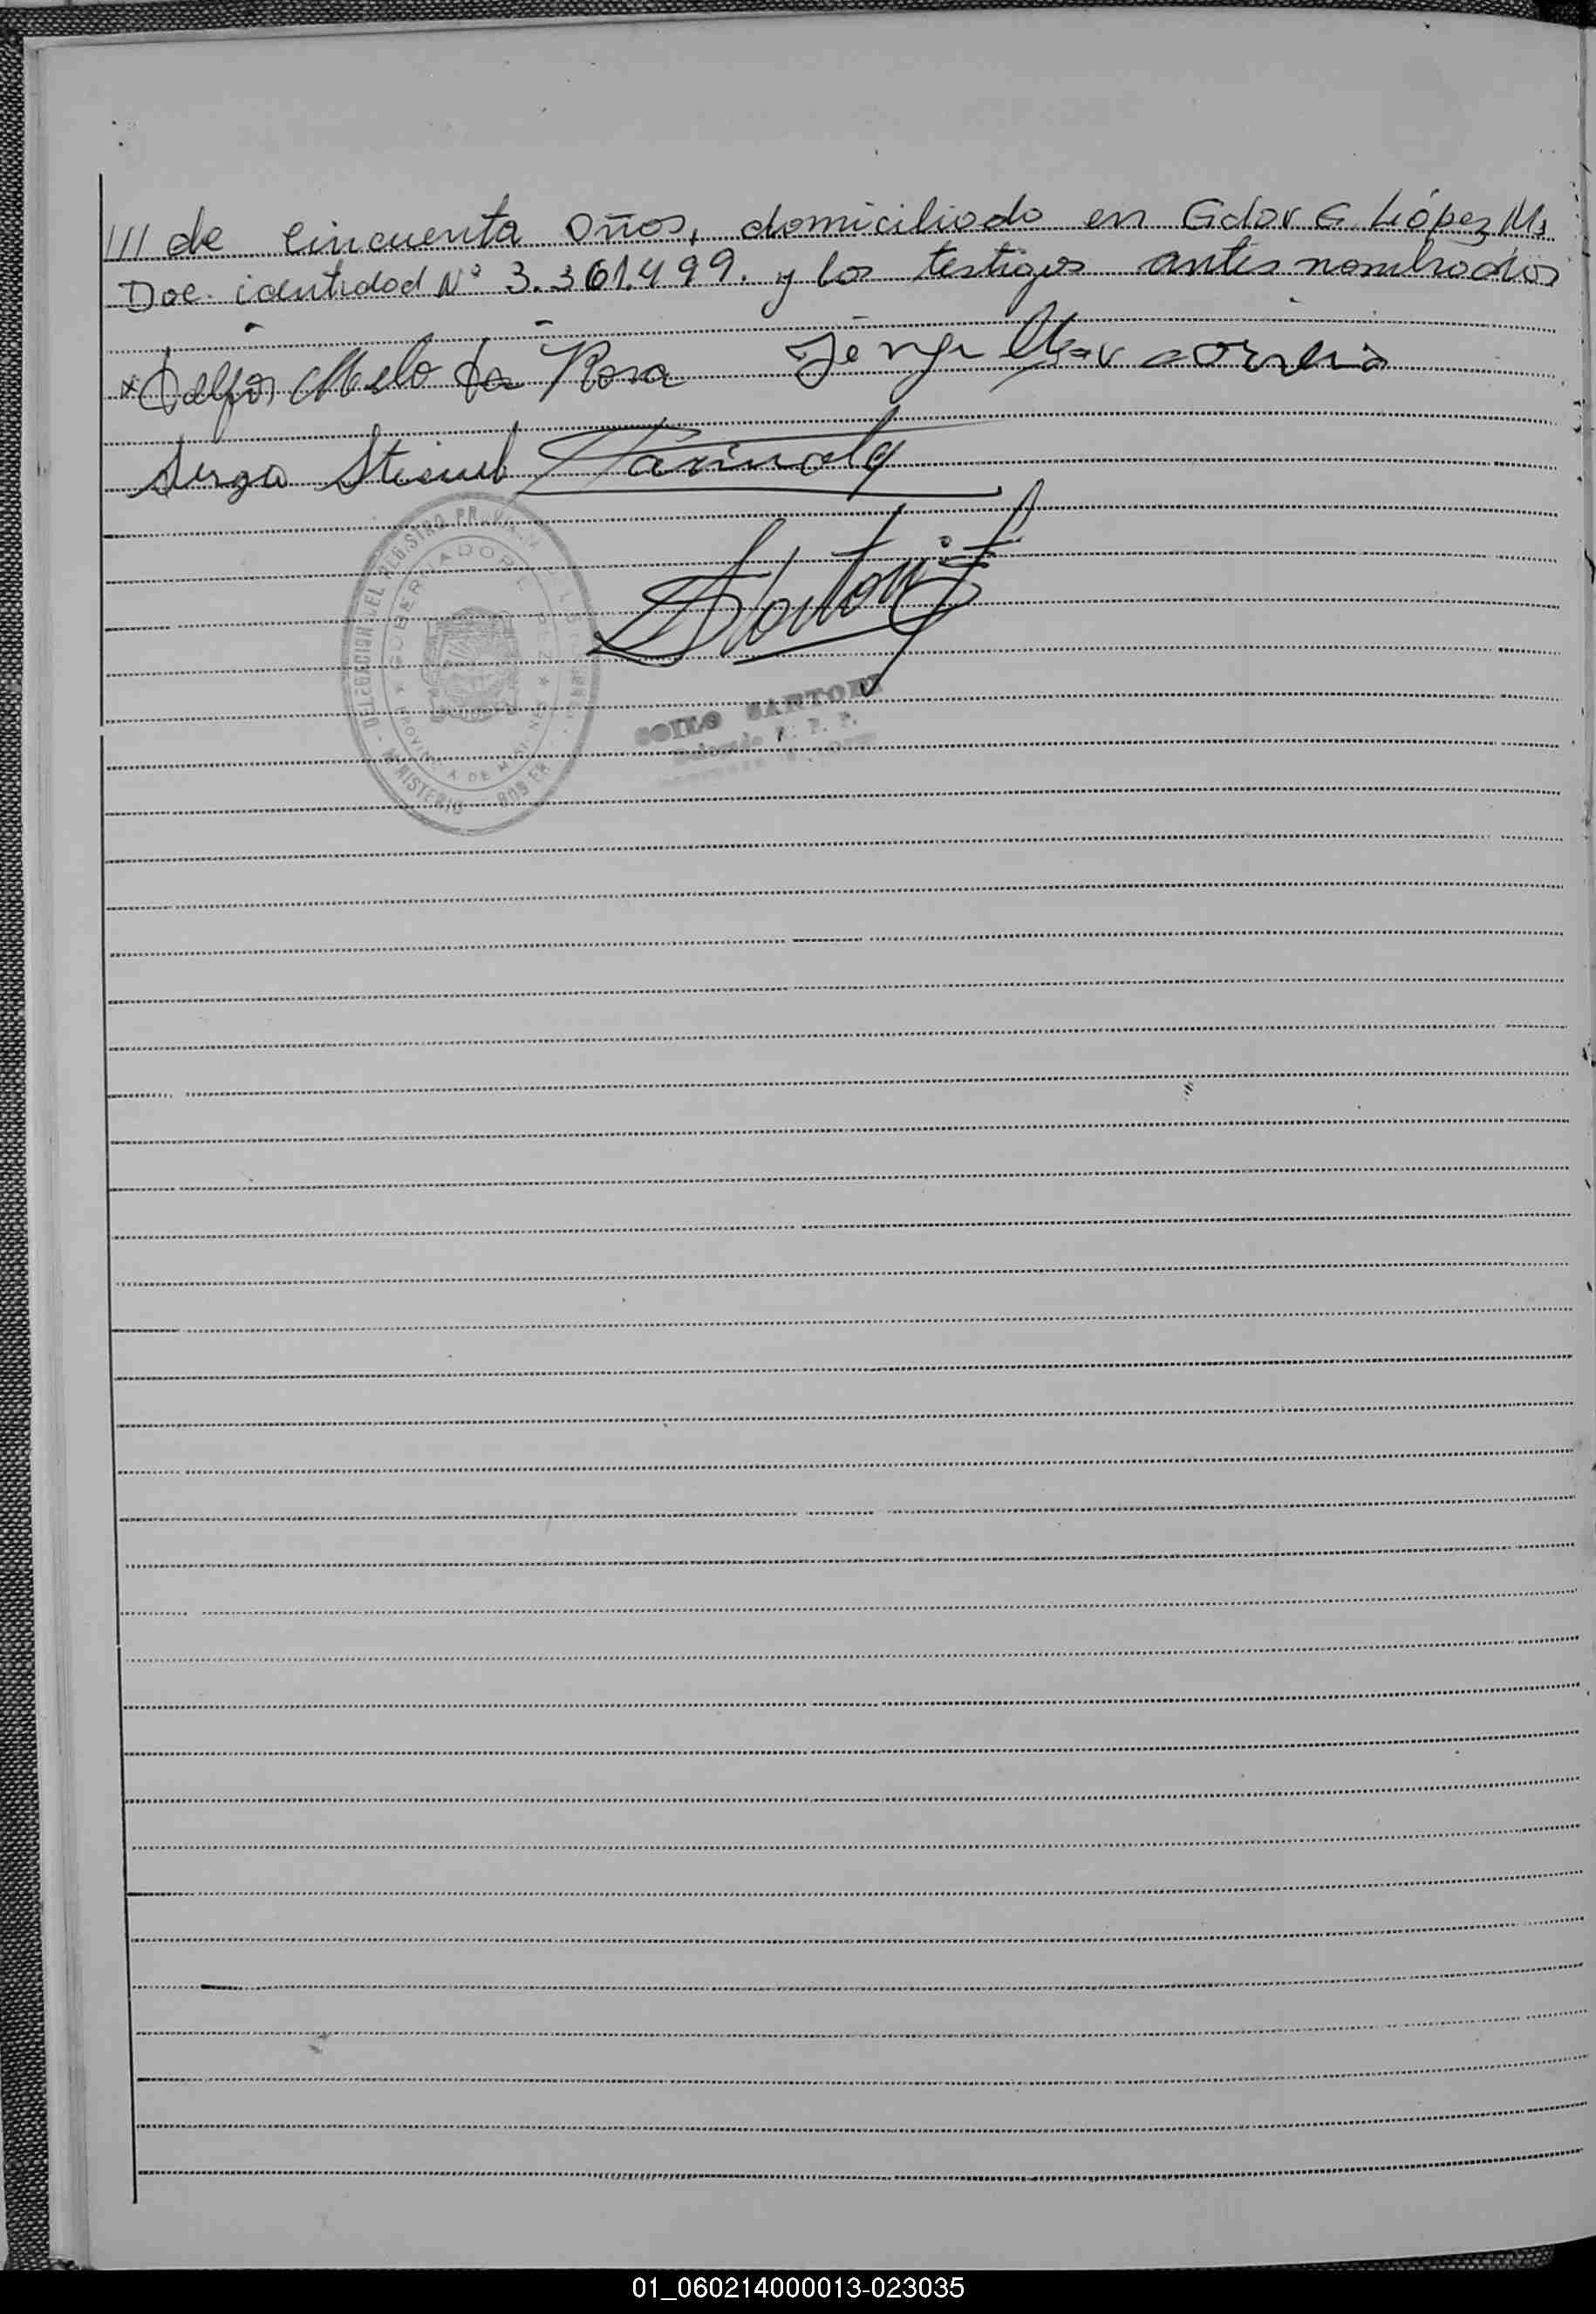 /// de cincuenta años, domiciliado en Gdor G. López Ms
Doc. identidad Nº 3.361.499. y los testigos antes nombrados
x Melo da Rosa Jorge
Stienel
DELEGACION DEL REGISTRO PROVINCIAL
GOBERNADOR LOPEZ
PROVINCIA DE MISIONES
MINISTERIO
SOILO SARTORI
Delegado R. P. P.
01_060214000013-023035